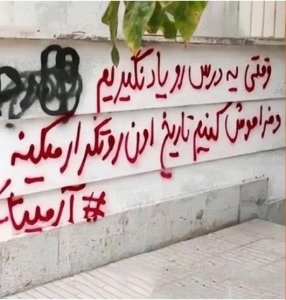 وقتی یه درس رو یاد نگیریم
و فراموش کنیم تاریخ اون رو تکرار میکنه
#آرمیتا